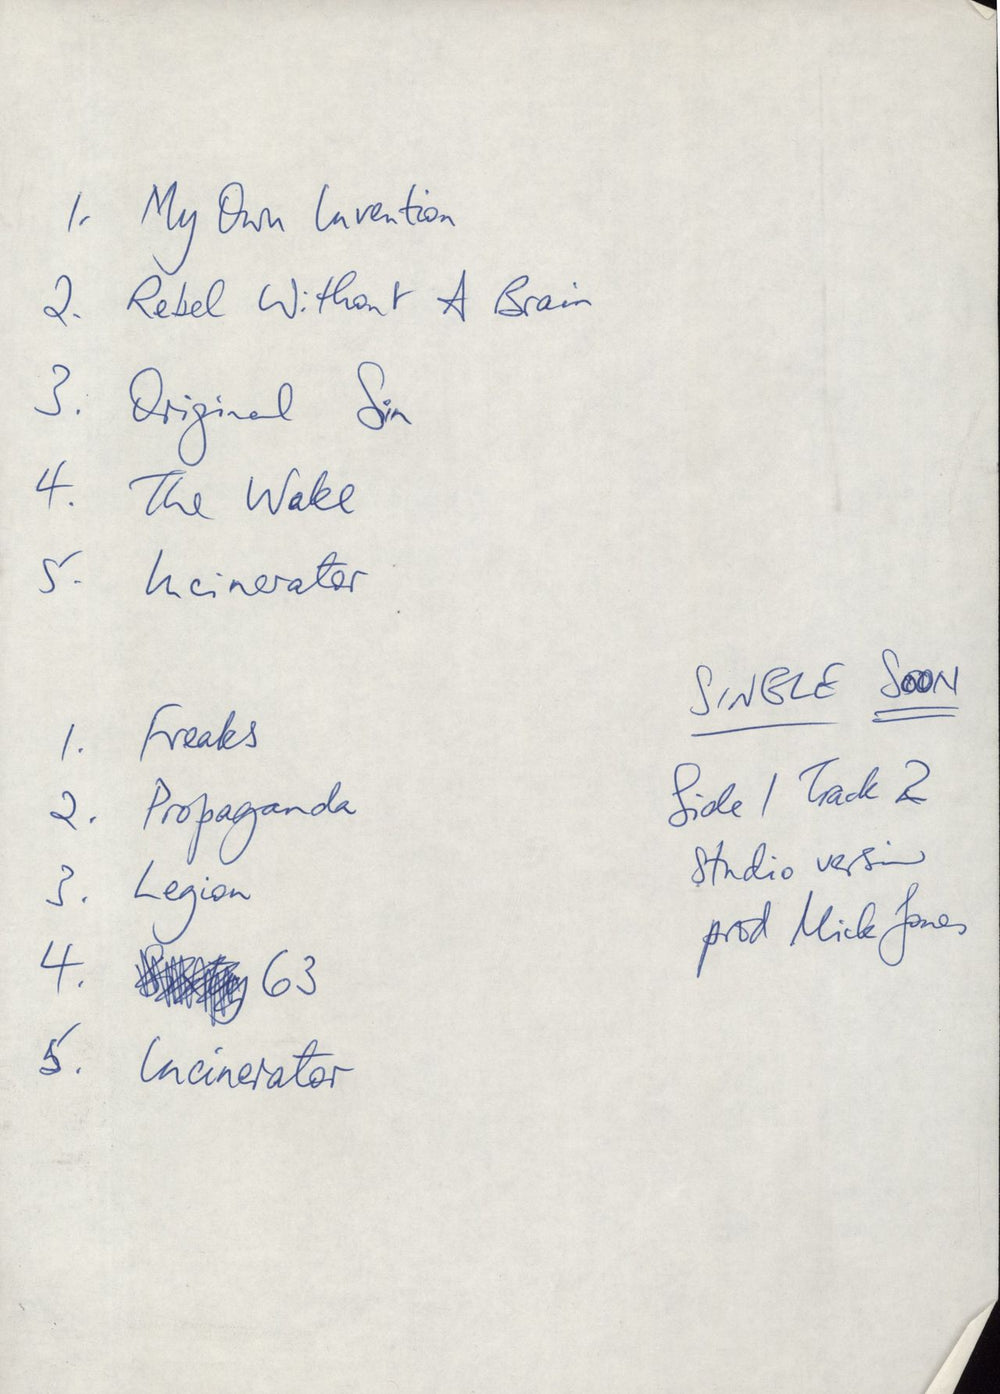 1. My Own Invention
2. Rebel Without A Brain
3. Original Sin
4. The Wake
5. Incinerator
1. Freaks
2. Propaganda
3. Legion
4. 63
5. Incinerator
SINGLE SOON
Side 1 Track 2
Studio version
prod Mick Jones